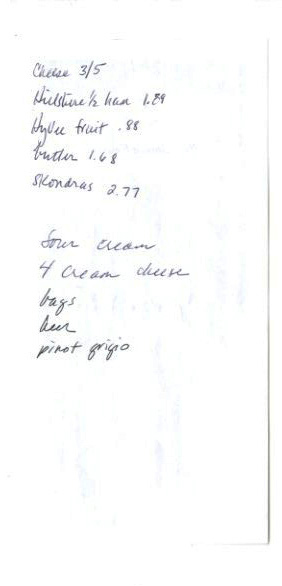 Cheese 3/5
Hillshire ½ ham 1.89
HyVee fruit .88
butter 1.68
Skondras 2.77
sour cream
4 cream cheese
bags
beer
pinot grigio